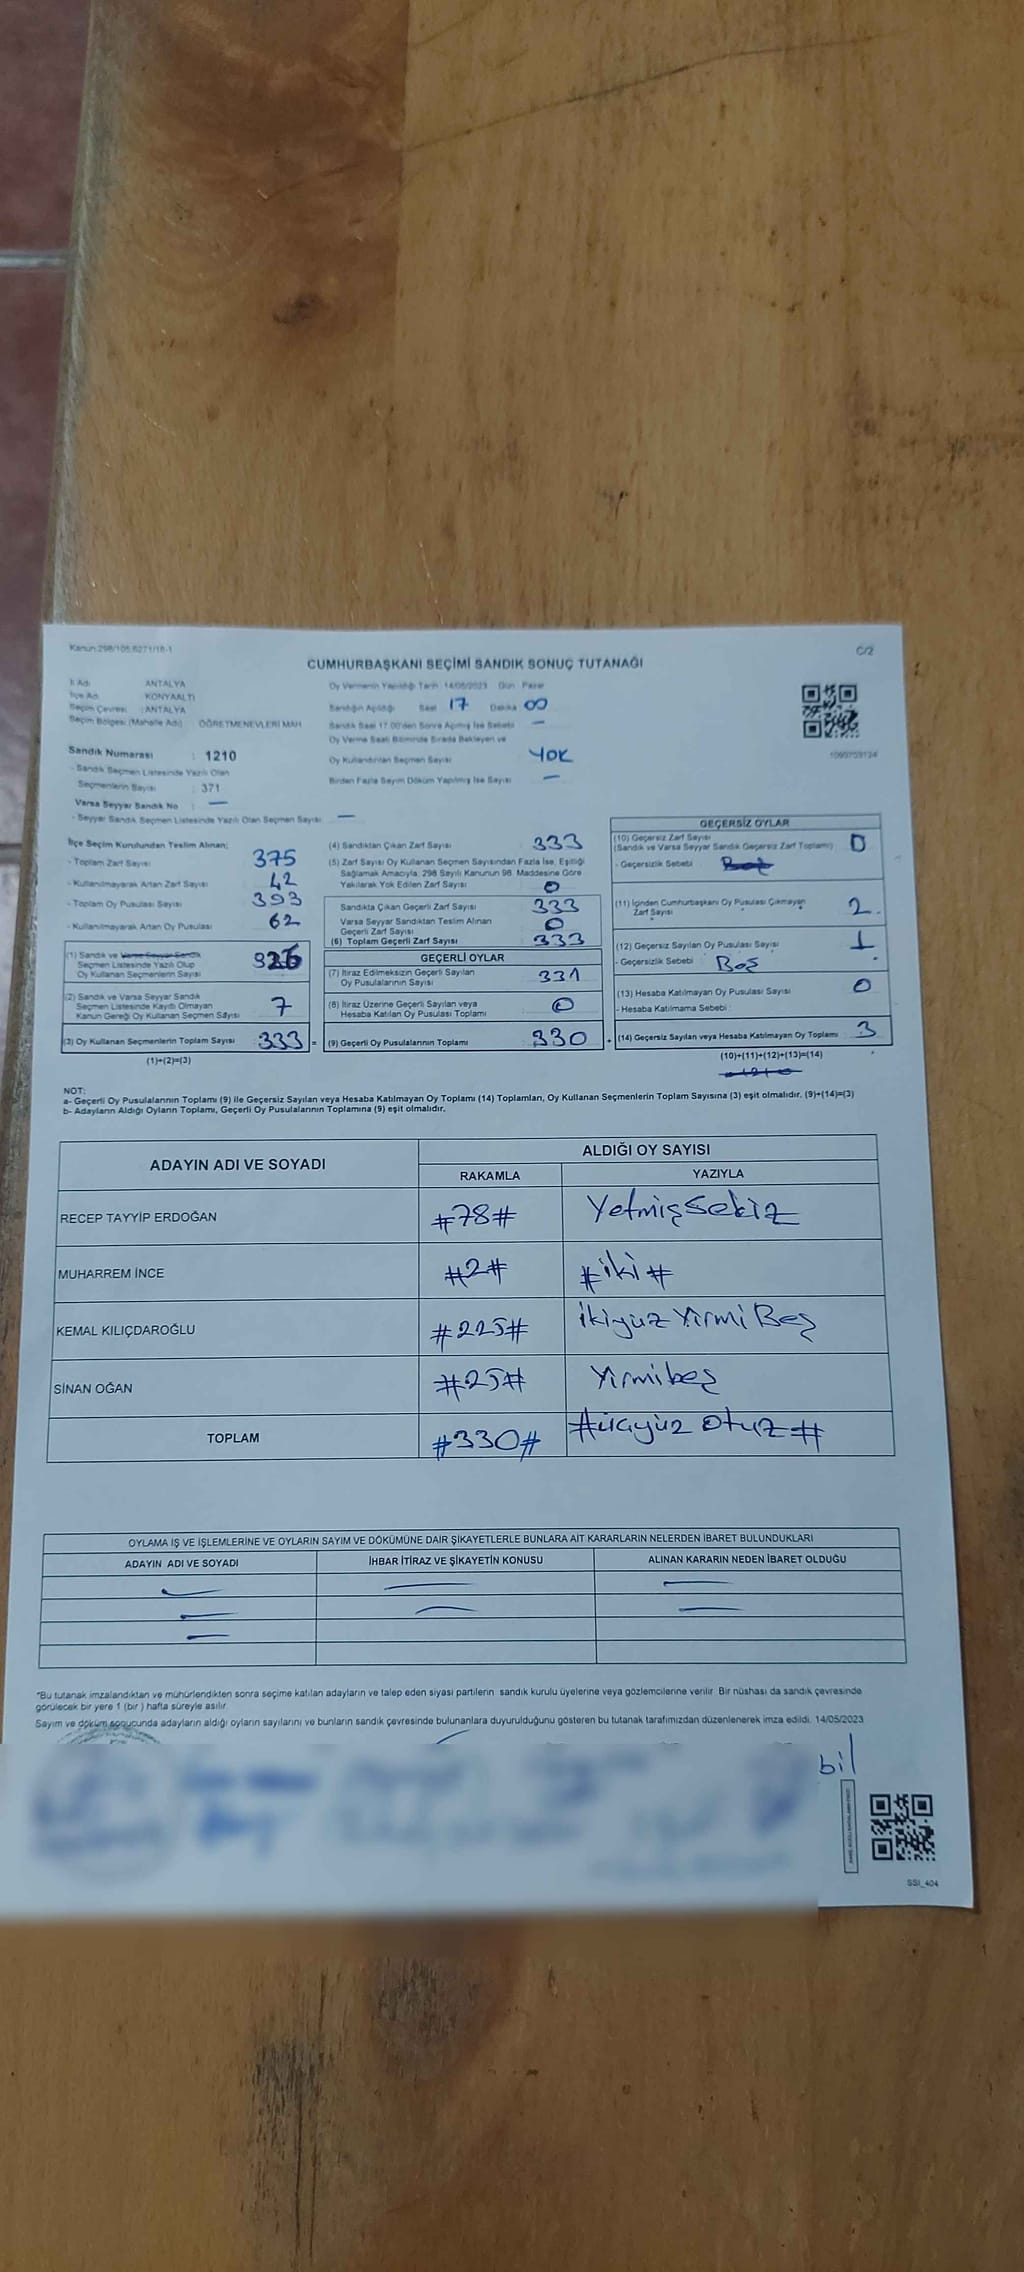 Kanun:298/105,6271/16-1
C/2
CUMHURBAŞKANI SEÇİMİ SANDIK SONUÇ TUTANAĞI
İl Adı : ANTALYA
İlçe Adı : KONYAALTI
Seçim Çevresi : ANTALYA
Seçim Bölgesi (Mahalle Adı) : ÖĞRETMENEVLERİ MAH.
Sandık Numarası : 1210
- Sandık Seçmen Listesinde Yazılı Olan
Seçmenlerin Sayısı : 371
Varsa Seyyar Sandık No : —
- Seyyar Sandık Seçmen Listesinde Yazılı Olan Seçmen Sayısı : —
Oy Vermenin Yapıldığı Tarih : 14/05/2023 Gün : Pazar
Sandığın Açıldığı Saat 17 Dakika 00
Sandık Saat 17:00'den Sonra Açılmış İse Sebebi —
Oy Verme Saati Bitiminde Sırada Bekleyen ve
Oy Kullandırılan Seçmen Sayısı YOK
Birden Fazla Sayım Döküm Yapılmış İse Sayısı —
İlçe Seçim Kurulundan Teslim Alınan;
- Toplam Zarf Sayısı 375
- Kullanılmayarak Artan Zarf Sayısı 42
- Toplam Oy Pusulası Sayısı 393
- Kullanılmayarak Artan Oy Pusulası 62
(1) Sandık ve Varsa Seyyar Sandık
Seçmen Listesinde Yazılı Olup
Oy Kullanan Seçmenlerin Sayısı 326
(2) Sandık ve Varsa Seyyar Sandık
Seçmen Listesinde Kayıtlı Olmayan
Kanun Gereği Oy Kullanan Seçmen Sayısı 7
(3) Oy Kullanan Seçmenlerin Toplam Sayısı 333 =
(1)+(2)=(3)
(4) Sandıktan Çıkan Zarf Sayısı 333
(5) Zarf Sayısı Oy Kullanan Seçmen Sayısından Fazla İse, Eşitliği
Sağlamak Amacıyla, 298 Sayılı Kanunun 98. Maddesine Göre
Yakılarak Yok Edilen Zarf Sayısı 0
Sandıkta Çıkan Geçerli Zarf Sayısı 333
Varsa Seyyar Sandıktan Teslim Alınan
Geçerli Zarf Sayısı 0
(6) Toplam Geçerli Zarf Sayısı 333
GEÇERLİ OYLAR
(7) İtiraz Edilmeksizin Geçerli Sayılan
Oy Pusulalarının Sayısı 331
(8) İtiraz Üzerine Geçerli Sayılan veya
Hesaba Katılan Oy Pusulası Toplamı 0
(9) Geçerli Oy Pusulalarının Toplamı 330 +
GEÇERSİZ OYLAR
(10) Geçersiz Zarf Sayısı
(Sandık ve Varsa Seyyar Sandık Geçersiz Zarf Toplamı) 0
- Geçersizlik Sebebi : Boş
(11) İçinden Cumhurbaşkanı Oy Pusulası Çıkmayan
Zarf Sayısı 2
(12) Geçersiz Sayılan Oy Pusulası Sayısı 1
- Geçersizlik Sebebi : Boş
(13) Hesaba Katılmayan Oy Pusulası Sayısı 0
- Hesaba Katılmama Sebebi :
(14) Geçersiz Sayılan veya Hesaba Katılmayan Oy Toplamı 3
(10)+(11)+(12)+(13)=(14)
NOT:
a- Geçerli Oy Pusulalarının Toplamı (9) ile Geçersiz Sayılan veya Hesaba Katılmayan Oy Toplamı (14) Toplamları, Oy Kullanan Seçmenlerin Toplam Sayısına (3) eşit olmalıdır. (9)+(14)=(3)
b- Adayların Aldığı Oyların Toplamı, Geçerli Oy Pusulalarının Toplamına (9) eşit olmalıdır.
ADAYIN ADI VE SOYADI ALDIĞI OY SAYISI
RAKAMLA YAZIYLA
RECEP TAYYİP ERDOĞAN #78# Yetmişsekiz
MUHARREM İNCE #2# #iki#
KEMAL KILIÇDAROĞLU #225# ikiyüz Yirmi Beş
SİNAN OĞAN #25# Yirmibeş
TOPLAM #330# #üçyüz otuz#
OYLAMA İŞ VE İŞLEMLERİNE VE OYLARIN SAYIM VE DÖKÜMÜNE DAİR ŞİKAYETLERLE BUNLARA AİT KARARLARIN NELERDEN İBARET BULUNDUKLARI
ADAYIN ADI VE SOYADI İHBAR İTİRAZ VE ŞİKAYETİN KONUSU ALINAN KARARIN NEDEN İBARET OLDUĞU
*Bu tutanak imzalandıktan ve mühürlendikten sonra seçime katılan adayların ve talep eden siyasi partilerin sandık kurulu üyelerine veya gözlemcilerine verilir. Bir nüshası da sandık çevresinde
görülecek bir yere 1 (bir ) hafta süreyle asılır.
Sayım ve döküm sonucunda adayların aldığı oyların sayılarını ve bunların sandık çevresinde bulunanlara duyurulduğunu gösteren bu tutanak tarafımızdan düzenlenerek imza edildi. 14/05/2023
bil
SSI_404